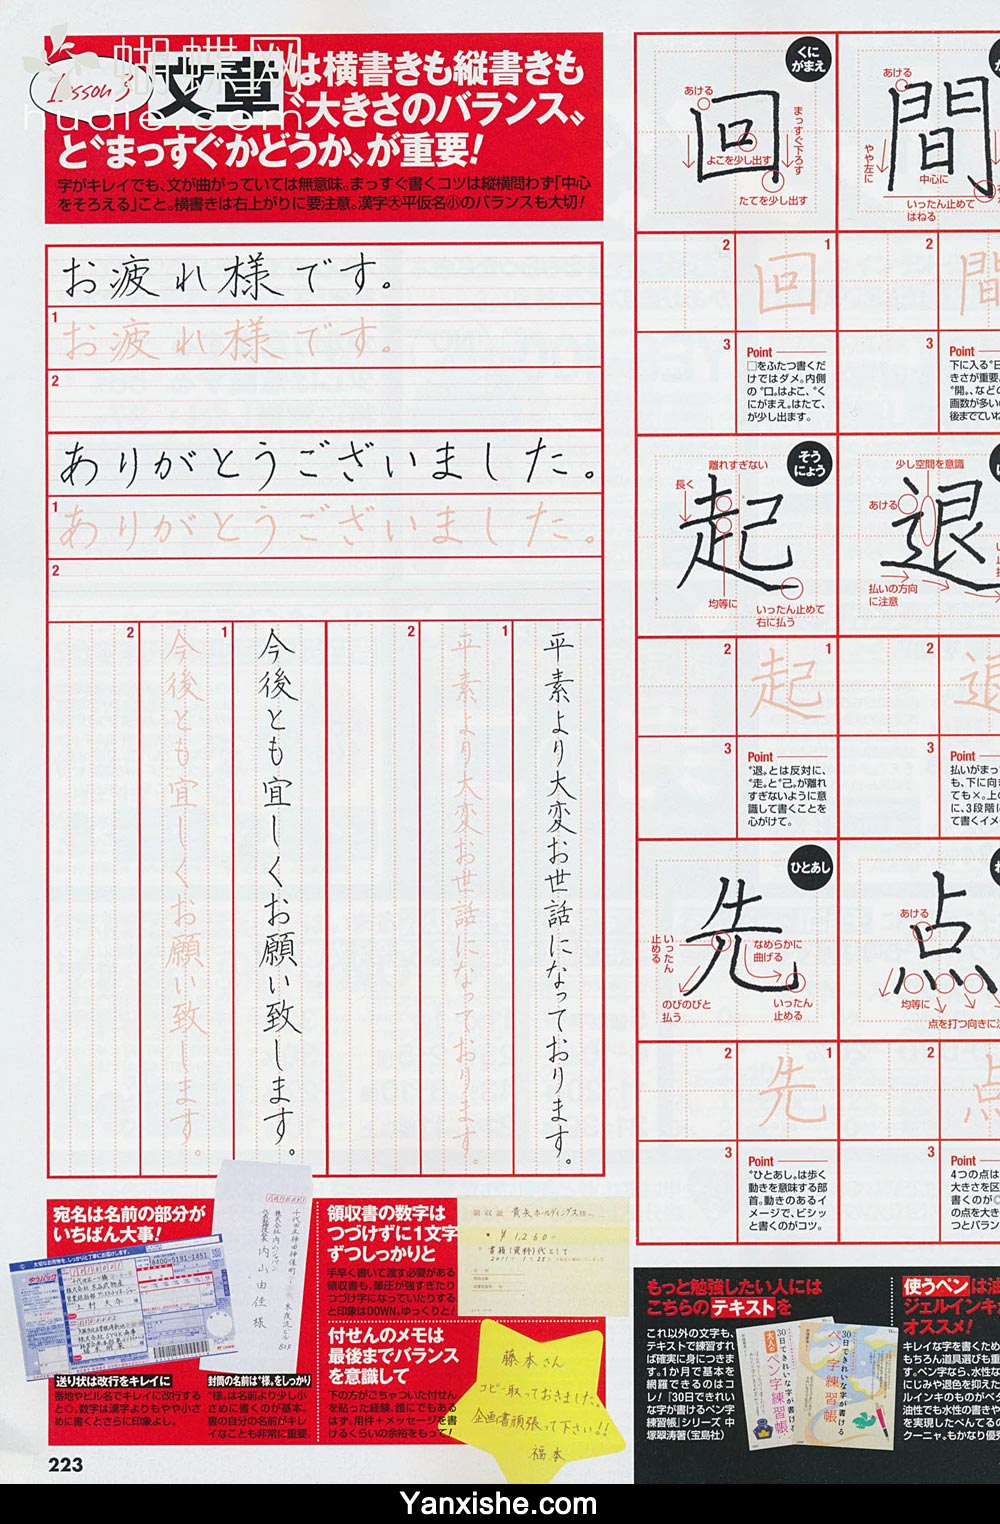 Lesson 3 文章は横書きも縦書きも
“大きさのバランス„
と“まっすぐかどうか„が重要!
字がキレイでも、文が曲がっていては無意味。まっすぐ書くコツは縦横問わず「中心
をそろえる」こと。横書きは右上がりに要注意。漢字大平仮名小のバランスも大切!
蝴蝶网
hudie.com
お疲れ様です。
1
お疲れ様です。
2
ありがとうございました。
1
ありがとうございました。
2
平素より大変お世話になっております。
1
平素より大変お世話になっております。
2
今後とも宜しくお願い致します。
1
今後とも宜しくお願い致します。
2
くに
がまえ
回
あける
まっすぐ下ろす
よこを少し出す
たてを少し出す
1
回
2
3
Point
□をふたつ書くだ
けではダメ。内側
の“口„はよこ、“く
にがまえ„はたて、
が少し出ます。
間
あける
やや左に
中心に
いったん止めて
はねる
間
2
3
Point
下に入る“日
きさが重要。
“開„、などの
画数が多い
後までていね
そう
にょう
起
離れすぎない
長く
均等に
いったん止めて
右に払う
1
起
2
3
Point
“退„とは反対に、
“走„と“己„が離れ
すぎないように意
識して書くことを
心がけて。
退
少し空間を意識
あける
払いの方向
に注意
退
2
3
Point
払いがまっ
も、下に向き
ても×。上の
に、3段階に
て書くイメ
ひとあし
先
いったん
止める
なめらかに
曲げる
のびのびと
払う
いったん
止める
1
先
2
3
Point
“ひとあし„は歩く
動きを意味する部
首。動きのあるイ
メージで、ビシッ
と書くのがコツ。
点
あける
均等に
点を打つ向きに注
点
2
3
Point
4つの点は
大きさを区
書くのが
の点を大き
つとバラン
宛名は名前の部分が
いちばん大事!
ゆうパック
8400-5191-1451
送り状は改行をキレイに
番地やビル名でキレイに改行する
と◎。数字は漢字よりもやや小さ
めに書くとさらに印象よし。
内山由佳様
封筒の名前は“様„をしっかり
“様„は名前より少し小
さめに書くのが基本。
裏の自分の名前がキレ
イなことも非常に重要。
領収書の数字は
つづけずに1文字
ずつしっかりと
手早く書いて渡す必要がある
領収書も、筆圧が強すぎたり
つづけ字になっていたりする
と印象はDOWN。ゆっくりと!
領収証 貴矢ホールディングス様
¥1,260-
書籍(資料)代として
付せんのメモは
最後までバランス
を意識して
下の方がごちゃついた付せん
を貼った経験、誰にでもある
はず。用件+メッセージを書
けるくらいの余裕をもって!
藤本さん
コピー取っておきました。
企画書頑張って下さい!!
福本
もっと勉強したい人には
こちらのテキストを
これ以外の文字も、
テキストで練習すれ
ば確実に身につきま
す。1か月で基本を
網羅できるのはコ
レ!「30日できれい
な字が書けるペン字
練習帳」シリーズ 中
塚翠涛著(宝島社)
30日できれいな字が書ける
大人のペン字練習帳
30日できれいな字が書ける
ペン字練習帳
使うペンは油
ジェルインキ
オススメ!
キレイな字を書くため
もちろん道具選びも重
す。ペン字なら、水性な
にじみや退色を抑えた
ルインキのものがベ
油性でも水性の書きや
を実現したぺんてるの
クーニャ„もかなり優秀
223
Yanxishe.com